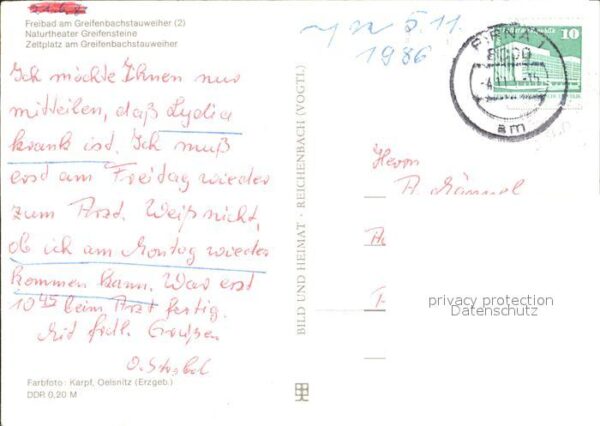 Freibad am Greifenbachstauweiher (2)
Naturtheater Greifensteine
Zeltplatz am Greifenbachstauweiher
Ich möchte Ihnen nur
mitteilen, daß Lydia
krank ist. Ich muß
erst am Freitag wieder
zum Arzt. Weiß nicht,
ob ich am Montag wieder
kommen kann. War erst
10 45 beim Arzt fertig.
Mit frdl. Grüßen
Farbfoto: Karpf, Oelsnitz (Erzgeb.)
DDR 0,20 M
BILD UND HEIMAT · REICHENBACH (VOGTL)
5.11.
1986
PIRNA 1
8300
am
10
Herrn
privacy protection
Datenschutz